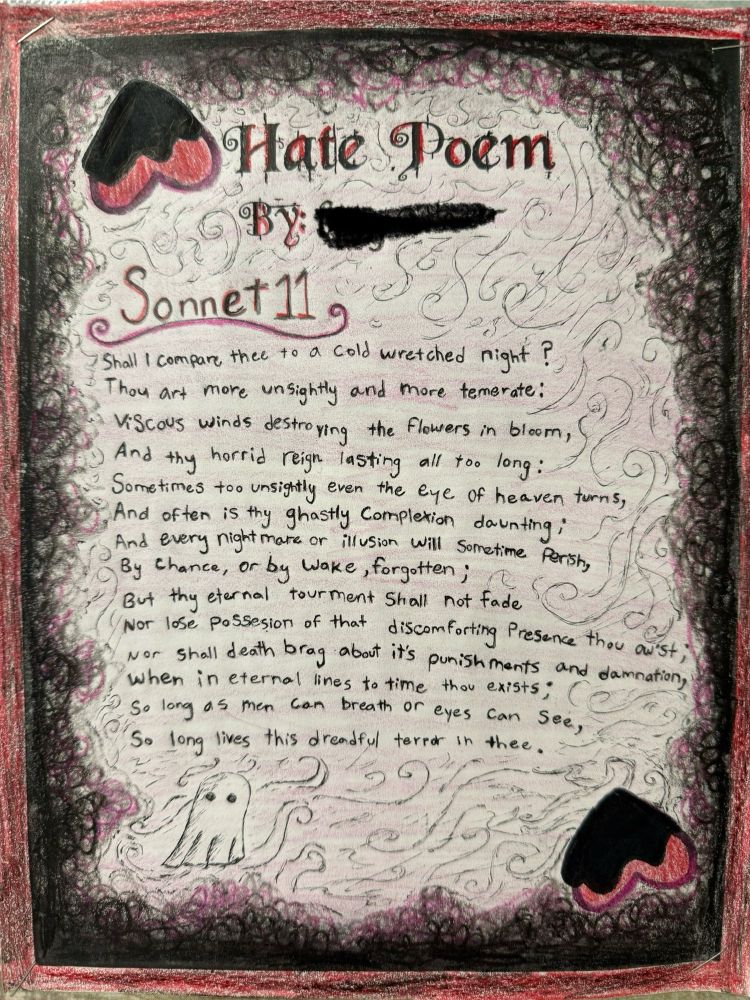 Hate Poem
By:
Sonnet 11
Shall I compare thee to a cold wretched night?
Thou art more unsightly and more temerate:
Viscous winds destroying the flowers in bloom,
And thy horrid reign lasting all too long:
Sometimes too unsightly even the eye of heaven turns,
And often is thy ghastly complexion daunting;
And every nightmare or illusion will sometime perish,
By chance, or by wake, forgotten;
But thy eternal tourment shall not fade
Nor lose possesion of that discomforting presence thou ow'st;
Nor shall death brag about it's punishments and damnation,
When in eternal lines to time thou exists;
So long as men can breath or eyes can see,
So long lives this dreadful terror in thee.